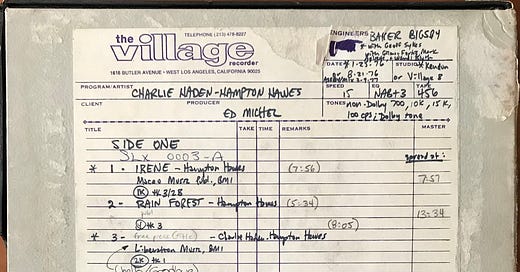 the village recorder
TELEPHONE (213) 478-8227
1616 BUTLER AVENUE • WEST LOS ANGELES, CALIFORNIA 90025
ENGINEERS BAKER BIGSBY
with Geoff Sykes
DATE 1-25-76
8-21-76
STUDIO Kendun
or Village B
PROGRAM/ARTIST
CHARLIE HADEN-HAMPTON HAWES
SPEED 15
EQ NAB+3
TAPE 456
CLIENT
PRODUCER
ED MICHEL
TONES
non-Dolby 700, 10K, 15K,
100 cps; Dolby tone
TITLE TAKE TIME REMARKS MASTER
SIDE ONE
SLX 0003-A
spread at:
* 1 - IRENE - Hampton Hawes (7:56)
Music Pub., BMI 7:57
1K #3/2B
2 - RAIN FOREST - Hampton Hawes (5:34)
13:34
#3
(8:05)
* 3 - - Charlie Haden, Hampton Hawes
Liberation Music, BMI
2K #1